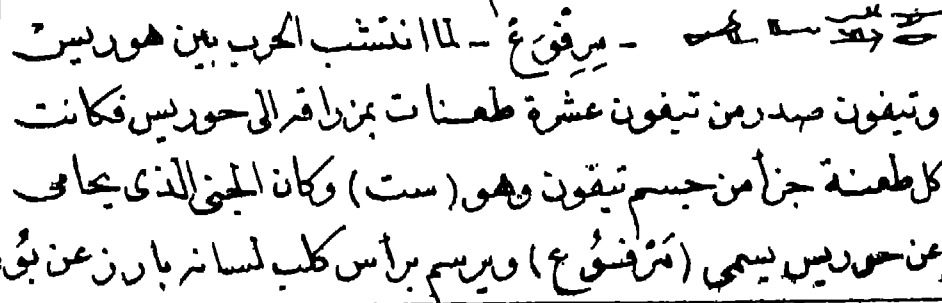 - مِرِفْوَع - لما انتشب الحرب بين هوريس
وتيفون صدر من تيفون عشرة طعنات بمزراقه الى حوريس فكانت
كل طعنة جزأ من جسم تيفون وهو (ست) وكان الجنى الذى يحامى
عن حوريس يسمى ( ع) ويرسم برأس كلب لسانه بارز عن